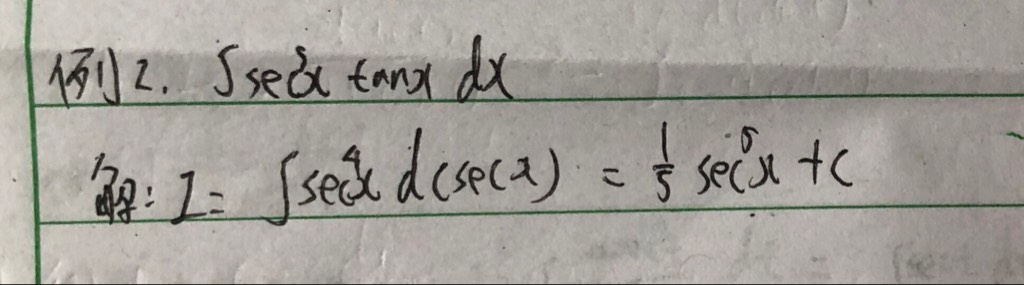 例2. ∫sec⁵x tanx dx
解: I = ∫sec⁴x d(secx) = 1/5 sec⁵x + C